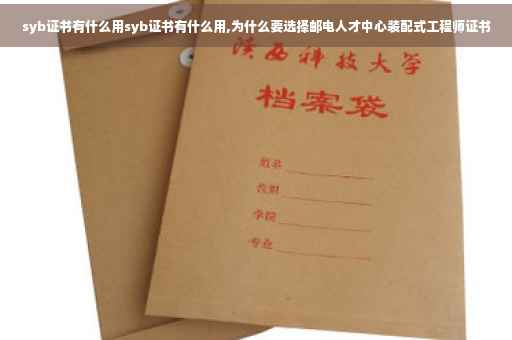 syb证书有什么用syb证书有什么用,为什么要选择邮电人才中心装配式工程师证书
陕西科技大学
档案袋
姓名
学院
专业